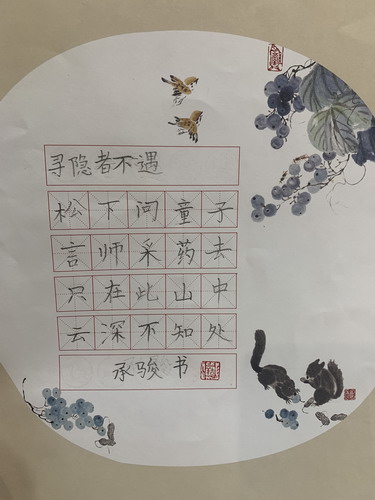 寻隐者不遇
松下问童子
言师采药去
只在此山中
云深不知处
承骏书